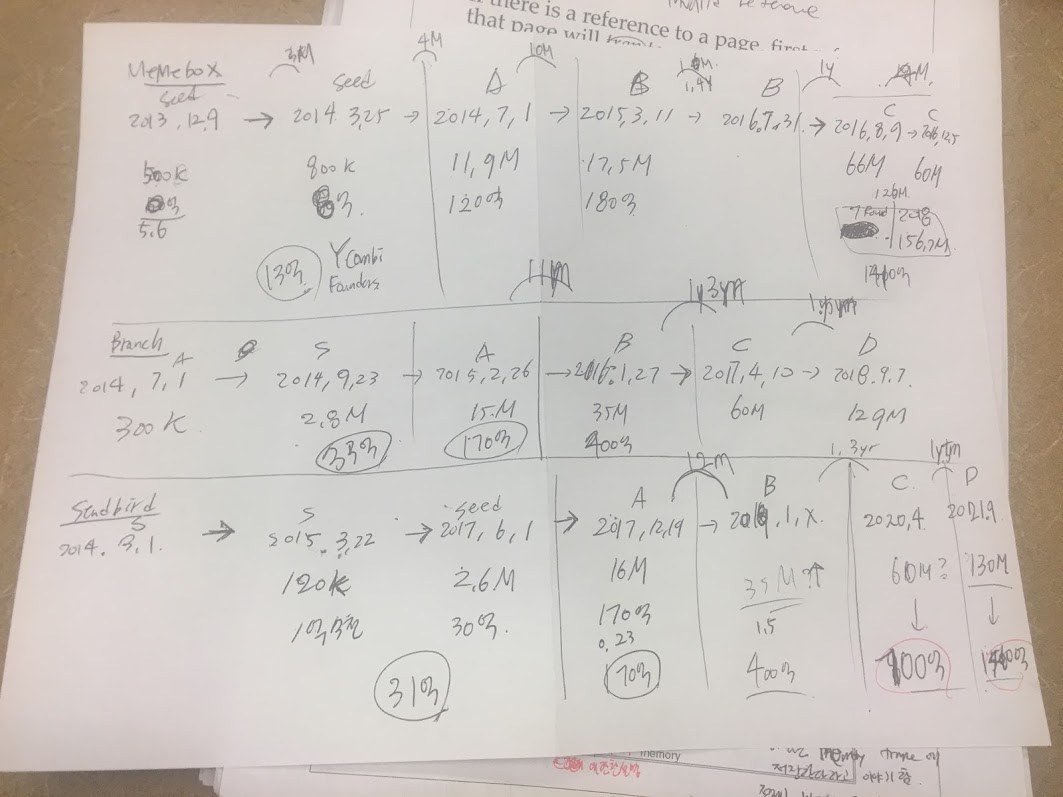 there is a reference to a page, first
that page will
3M 4M 10M 1y
Memebox
seed seed A B B C C
2013,12,9 → 2014.3,25 → 2014,7,1 → 2015,3,11 → 2016.7.31. → 2016,8,9 → 2016,12,5
500K 800K 11,9M 17,5M 66M 60M
억 억. 120억 180억 126M
5.6
2018
156,2M
13억 YCombi
Founders
11M 1y3m
Branch
A S A B C D
2014,7,1 → 2014,9,23 → 2015,2,26 → 2016.1,27 → 2017,4,10 → 2018.9.7.
300K. 2,8M 15.M 35M 60M 129M
33억 170억 400억
12M 1,3yr
Sendbird
S S seed A B C. D
2014.3,1. → 2015.3,22 → 2017,6,1 → 2017,12,19 → 2019,1,X. 2020,4. 2021.9.
120K 2.6M 16M 35M?↑ 60M? 130M
30억. 170억 1.5 ↓ ↓
0,23
31억 70억 400억 700억
memory
memory frame